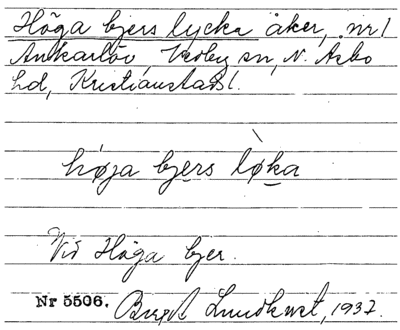 Höga bjers lycka åker, nr 1
Ankarlöv, Vedby sn, N. Asbo
hd, Kristianstads l.
høja bjers lø̀ka
Vid Höga bjer.
Nr 5506. Birgit Lundkvist, 1937.